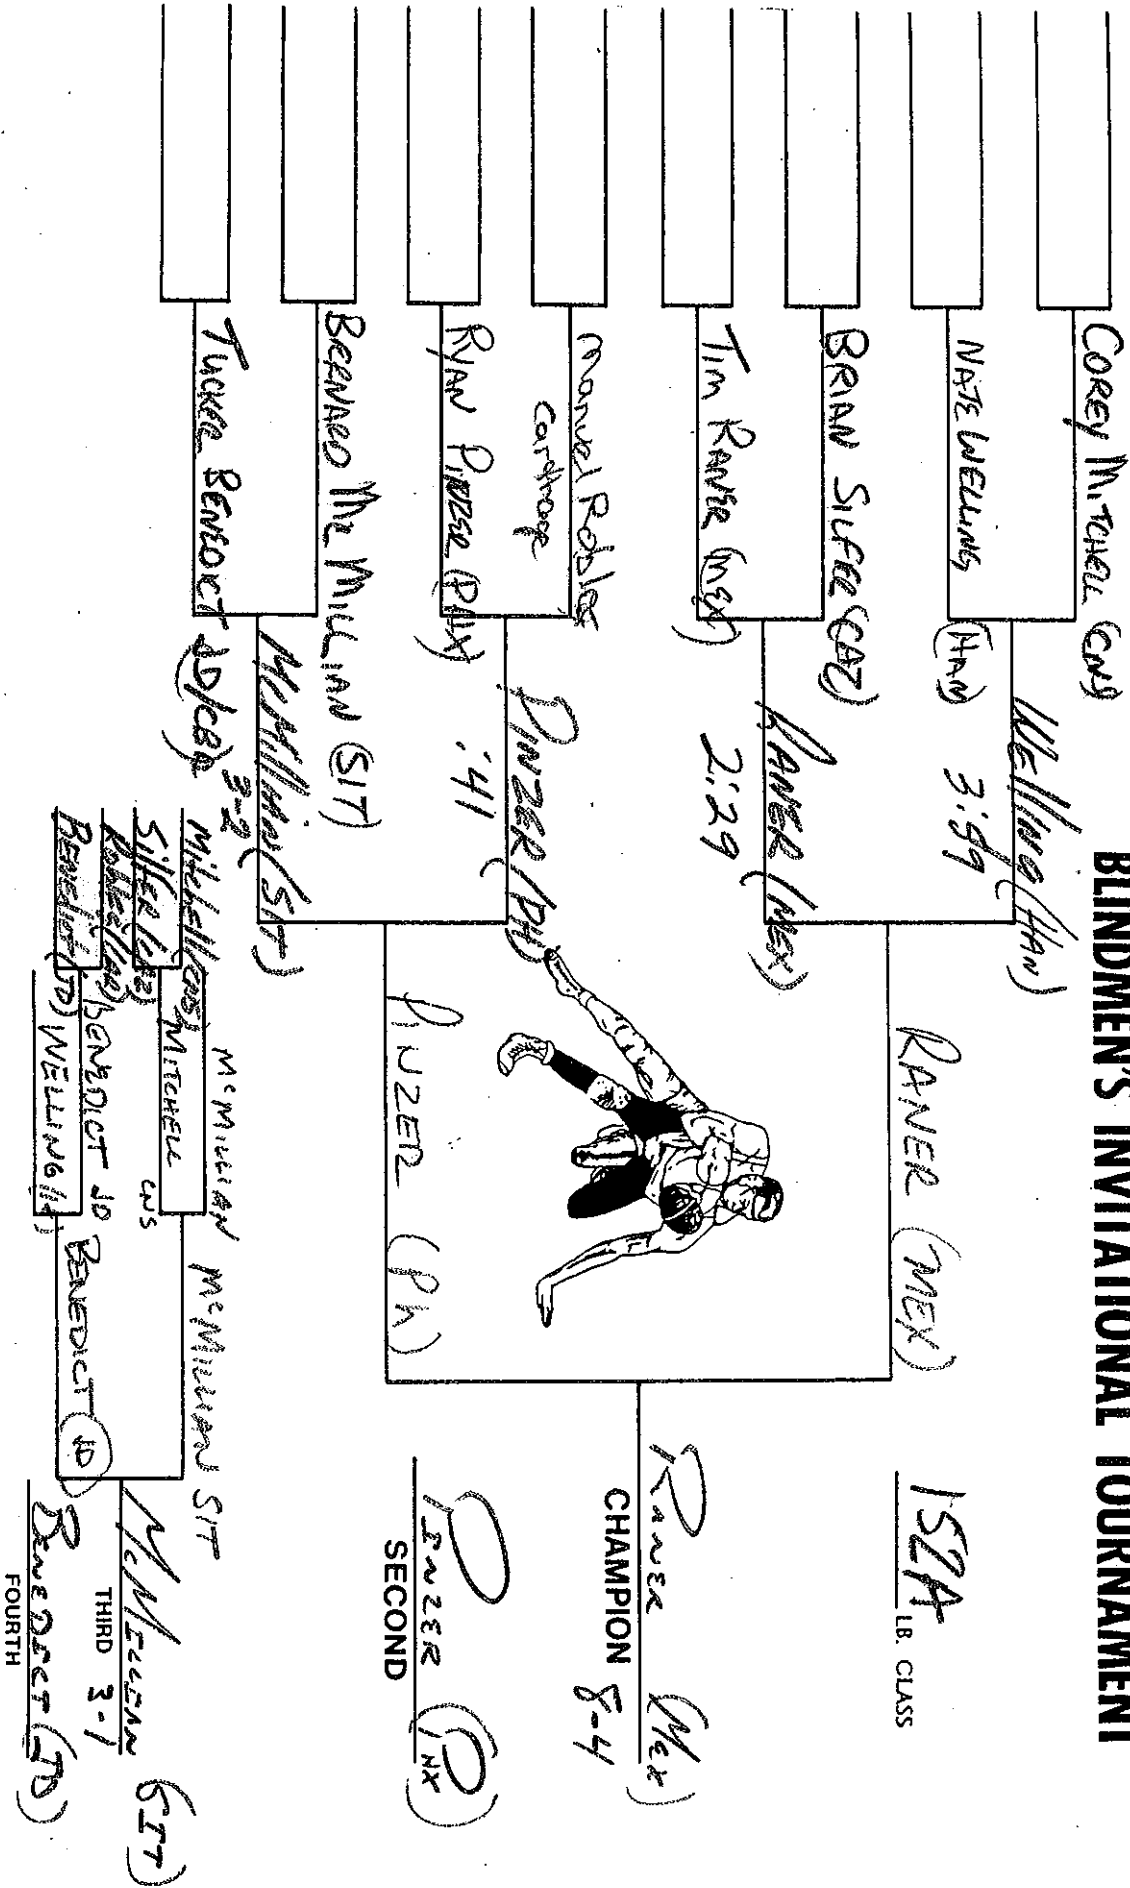 BLINDMEN'S INVITATIONAL TOURNAMENT
152A LB. CLASS
COREY MITCHELL (CNS)
NATE WELLING (HAN)
BRIAN SILFER (CAZ)
TIM RANER (MEX)
Manuel Robles
Carthage
RYAN PINZER (PHX)
BERNARD McMILLIAN (SIT)
TUCKER BENEDICT JD/CBA
WELLING (HAN)
3:59
RANER (MEX)
2:29
PINZER (PH)
:41
McMillian (SIT)
3-2
RANER (MEX)
PINZER (Ph)
RANER (MEX)
CHAMPION
8-4
PINZER (PHX)
SECOND
Mitchell (CNS)
Silfer (CAZ)
Robles (CAR)
BENEDICT (JD)
McMILLIAN
MITCHELL CNS
BENEDICT JD
WELLING (H)
McMILLIAN SIT
BENEDICT JD
McMILLIAN (SIT)
THIRD 3-1
BENEDICT (JD)
FOURTH